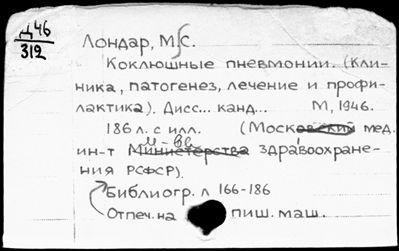 Д46
312
Лондар, М.С.
Коклюшные пневмонии. (Кли-
ника, патогенез, лечение и профи-
лактика). Дисс... канд... М, 1946.
186 л. с илл. (Московский мед.
м-ва
ин-т Министерства здравоохране-
ния РСФСР).
Библиогр. л 166-186
Отпеч. на пиш. маш.